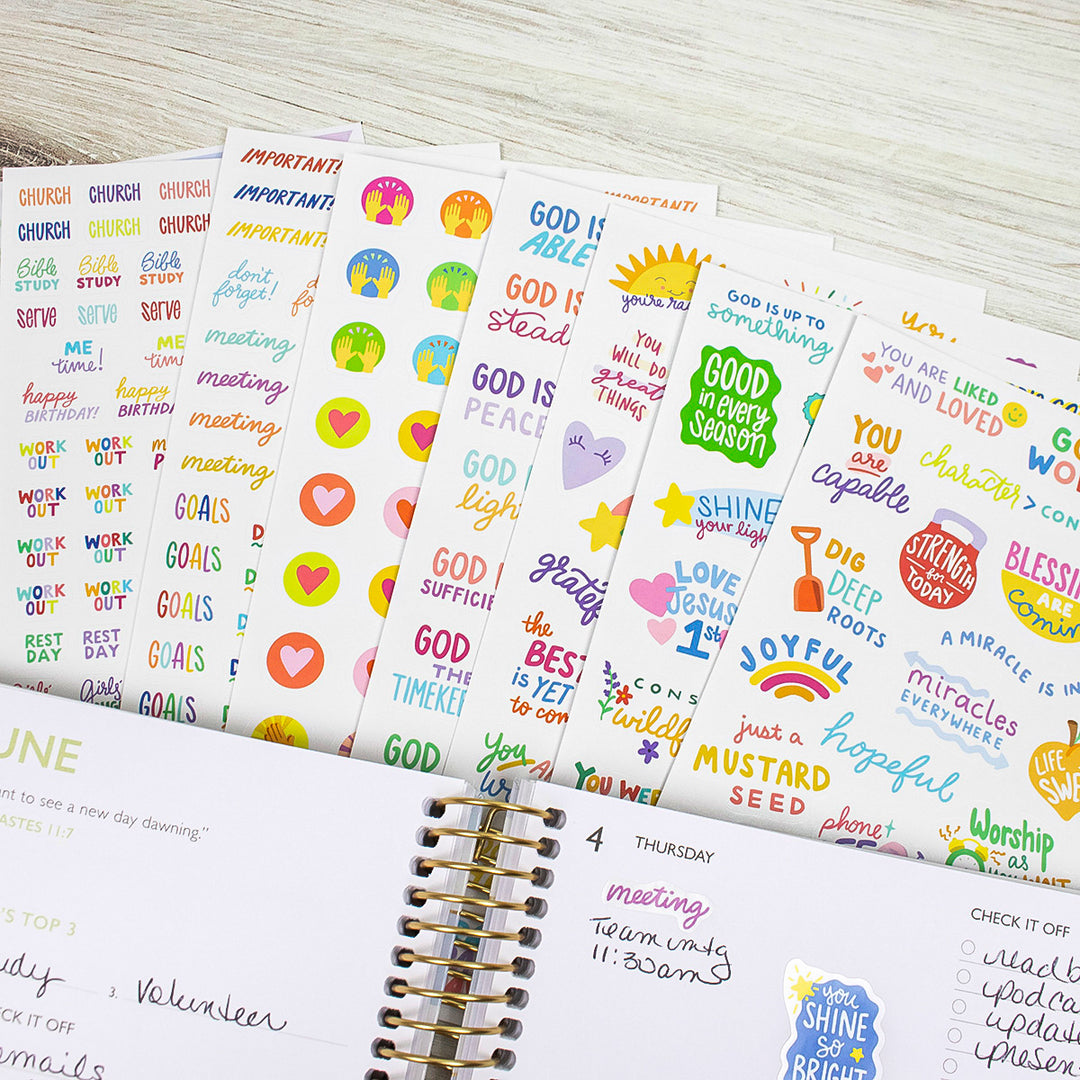 CHURCH CHURCH CHURCH
CHURCH CHURCH CHURCH
Bible Bible Bible
STUDY STUDY STUDY
serve serve serve
ME ME
time! time!
happy happy
BIRTHDAY! BIRTHDAY
WORK WORK
OUT OUT
WORK WORK
OUT OUT
WORK WORK
OUT OUT
WORK WORK
OUT OUT
REST REST
DAY DAY
IMPORTANT!
IMPORTANT!
IMPORTANT!
don't
forget!
meeting
meeting
meeting
meeting
GOALS
GOALS
GOALS
GOALS
GOALS
IMPORTANT!
GOD IS
ABLE
GOD IS
GOD IS
PEACE
GOD
GOD
GOD
THE
GOD
you're
YOU
WILL DO
great
THINGS
the
BEST
is YET
to
YOU
GOD IS UP TO
something
GOOD
in every
season
SHINE
your
LOVE
Jesus
1st
YOU
YOU ARE LIKED
AND LOVED
YOU
are
capable
character >
DIG
DEEP
ROOTS
STRENGTH
for
TODAY
ARE
JOYFUL
A MIRACLE IS IN
miracles
EVERYWHERE
just a
MUSTARD
SEED
hopeful
LIFE
phone
Worship
as
UNE
to see a new day dawning."
11:7
TOP 3
3. Volunteer
CK IT OFF
emails
4 THURSDAY
meeting
Team mtg
11:30am
you
SHINE
so
BRIGHT
CHECK IT OFF